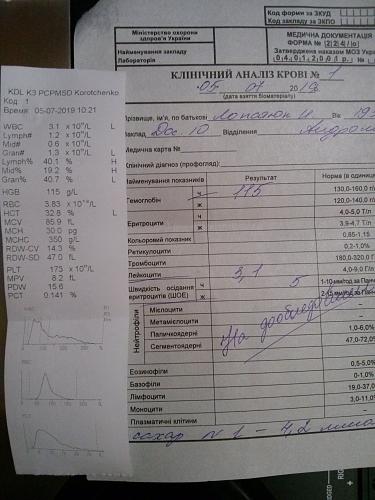 KDL K3 PCPM5D Korotchenko
Код: 1
Время: 05-07-2019 10:21
WBC 3.1 x 10⁹/L L
Lymph# 1.2 x 10⁹/L
Mid# 0.6 x 10⁹/L
Gran# 1.3 x 10⁹/L L
Lymph% 40.1 % H
Mid% 19.2 % H
Gran% 40.7 % L
HGB 115 g/L
RBC 3.83 x 10¹²/L
HCT 32.8 % L
MCV 85.9 fL
MCH 30.0 pg
MCHC 350 g/L
RDW-CV 14.3 %
RDW-SD 47.0 fL
PLT 173 x 10⁹/L
MPV 8.2 fL
PDW 15.6
PCT 0.141 % L
WBC
RBC
PLT
Код форми за ЗКУД
Код закладу за ЗКПО
Міністерство охорони
здоров'я України
Найменування закладу
Лабораторія
МЕДИЧНА ДОКУМЕНТАЦІЯ
ФОРМА № 224/о
Затверджена наказом МОЗ України
04.01.2001 р. №
КЛІНІЧНИЙ АНАЛІЗ КРОВІ № 1
05 07 2019
(дата взяття біоматеріалу)
Прізвище, ім'я, по батькові
Відділення
Медична карта №
Клінічний діагноз (профогляд):
Найменування показників Результат Норма (в одиницях
Гемоглобін ч 115 130,0-160,0 г/л
ж 120,0-140,0 г/л
Еритроцити ч 4,0-5,0 Т/л
ж 3,9-4,7 Т/л
Кольоровий показник 0,85-1,15
Ретикулоцити 0,2-1,0%
Тромбоцити 180,0-320,0 Г/
Лейкоцити 3,1 4,0-9,0 Г/л
Швидкість осідання
еритроцитів (ШОЕ) ч 5 1-10 мм/год за Панч
ж 2-15 мм/год за Панч
Нейтрофіли
Мієлоцити
Метамієлоцити
Паличкоядерні 1,0-6,0%
Сегментоядерні 47,0-72,0
На дообстеження
Еозинофіли 0,5-5,0%
Базофіли 0-1,0%
Лімфоцити 19,0-37,0
Моноцити 3,0-11,0
Плазматичні клітини
сахар N 1 - 4,2